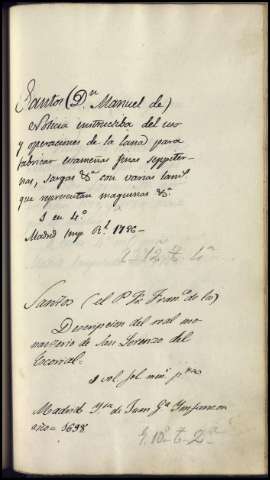 Santos (Dn. Manuel de)
Noticia instructiba del uso
y operaciones de la lana para
fabricar estameñas finas seppiter-
nas, sargas &a. con varias lams.
que representan maquinas &a.
1 en 4º
Madrid Imp. Rl. 1786–
Santos (el P. Fr. Franco. de los)
Descripcion del real mo
nasterio de San Lorenzo del
Escorial–
1 vol. fol.
Madrid de Juan Ga. Infanzon
año = 1698